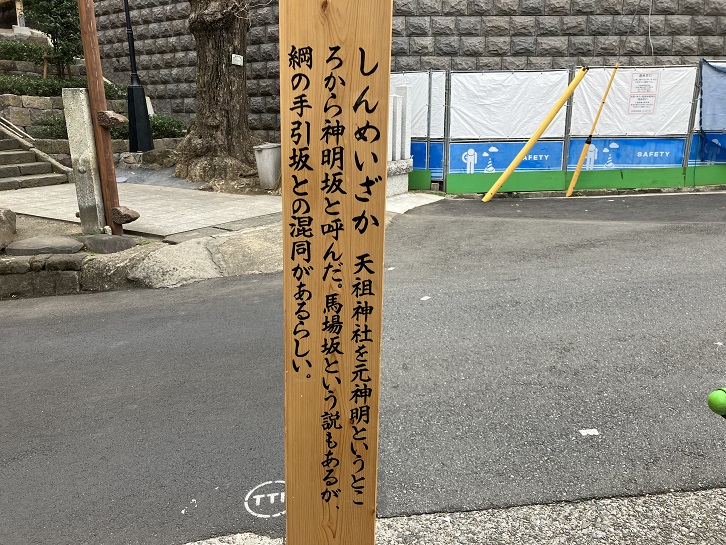 しんめいざか 天祖神社を元神明というとこ
ろから神明坂と呼んだ。馬場坂という説もあるが、
綱の手引坂との混同があるらしい。
SAFETY
SAFETY